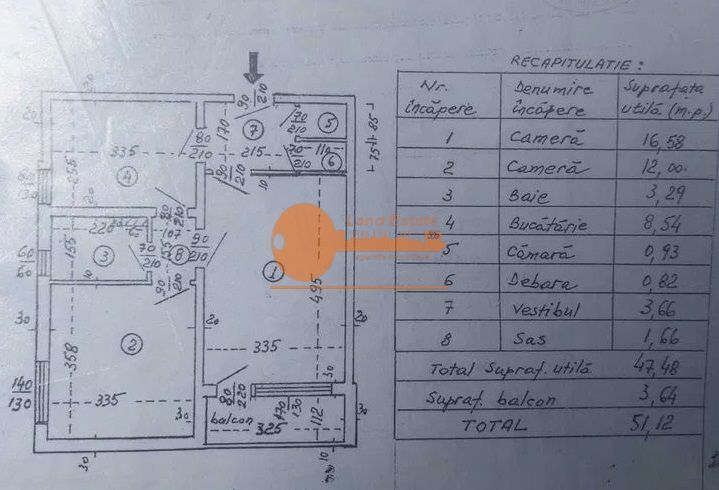 RECAPITULATIE :
Nr. încăpere Denumire încăpere Suprafața utilă (m.p.)
1 Cameră 16,58
2 Cameră 12,00
3 Baie 3,29
4 Bucătărie 8,54
5 Cămară 0,93
6 Debara 0,82
7 Vestibul 3,66
8 Sas 1,66
Total Supraf. utilă 47,48
Supraf. balcon 3,64
TOTAL 51,12
90
210
70
210
5
20
170
7
80
210
335
215
70
210
110
6
75 85
255
4
90
210
10
80
210
Land Estate
220
107
90
210
60
60
155
3
70
210
155
8
1
495
10
90
210
30
2
20
335
20
358
140
130
335
80
220
170
130
30
balcon
325
112
30
30
30
10